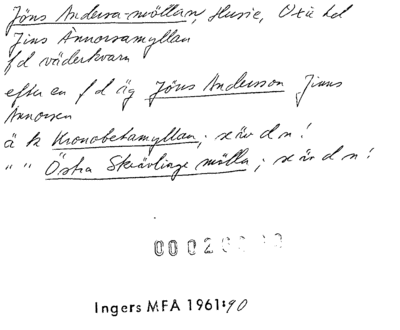 Jöns Anders-möllan, Husie, Oxie hd
Jins Annorsamyllan
f d väderkvarn
efter en f d äg Jöns Andersson Jinns
Annorsen
ä k Kronobetamyllan; se är d n!
" " Östra Skrävlinge mölla; se är d n!
Ingers MFA 1961:90